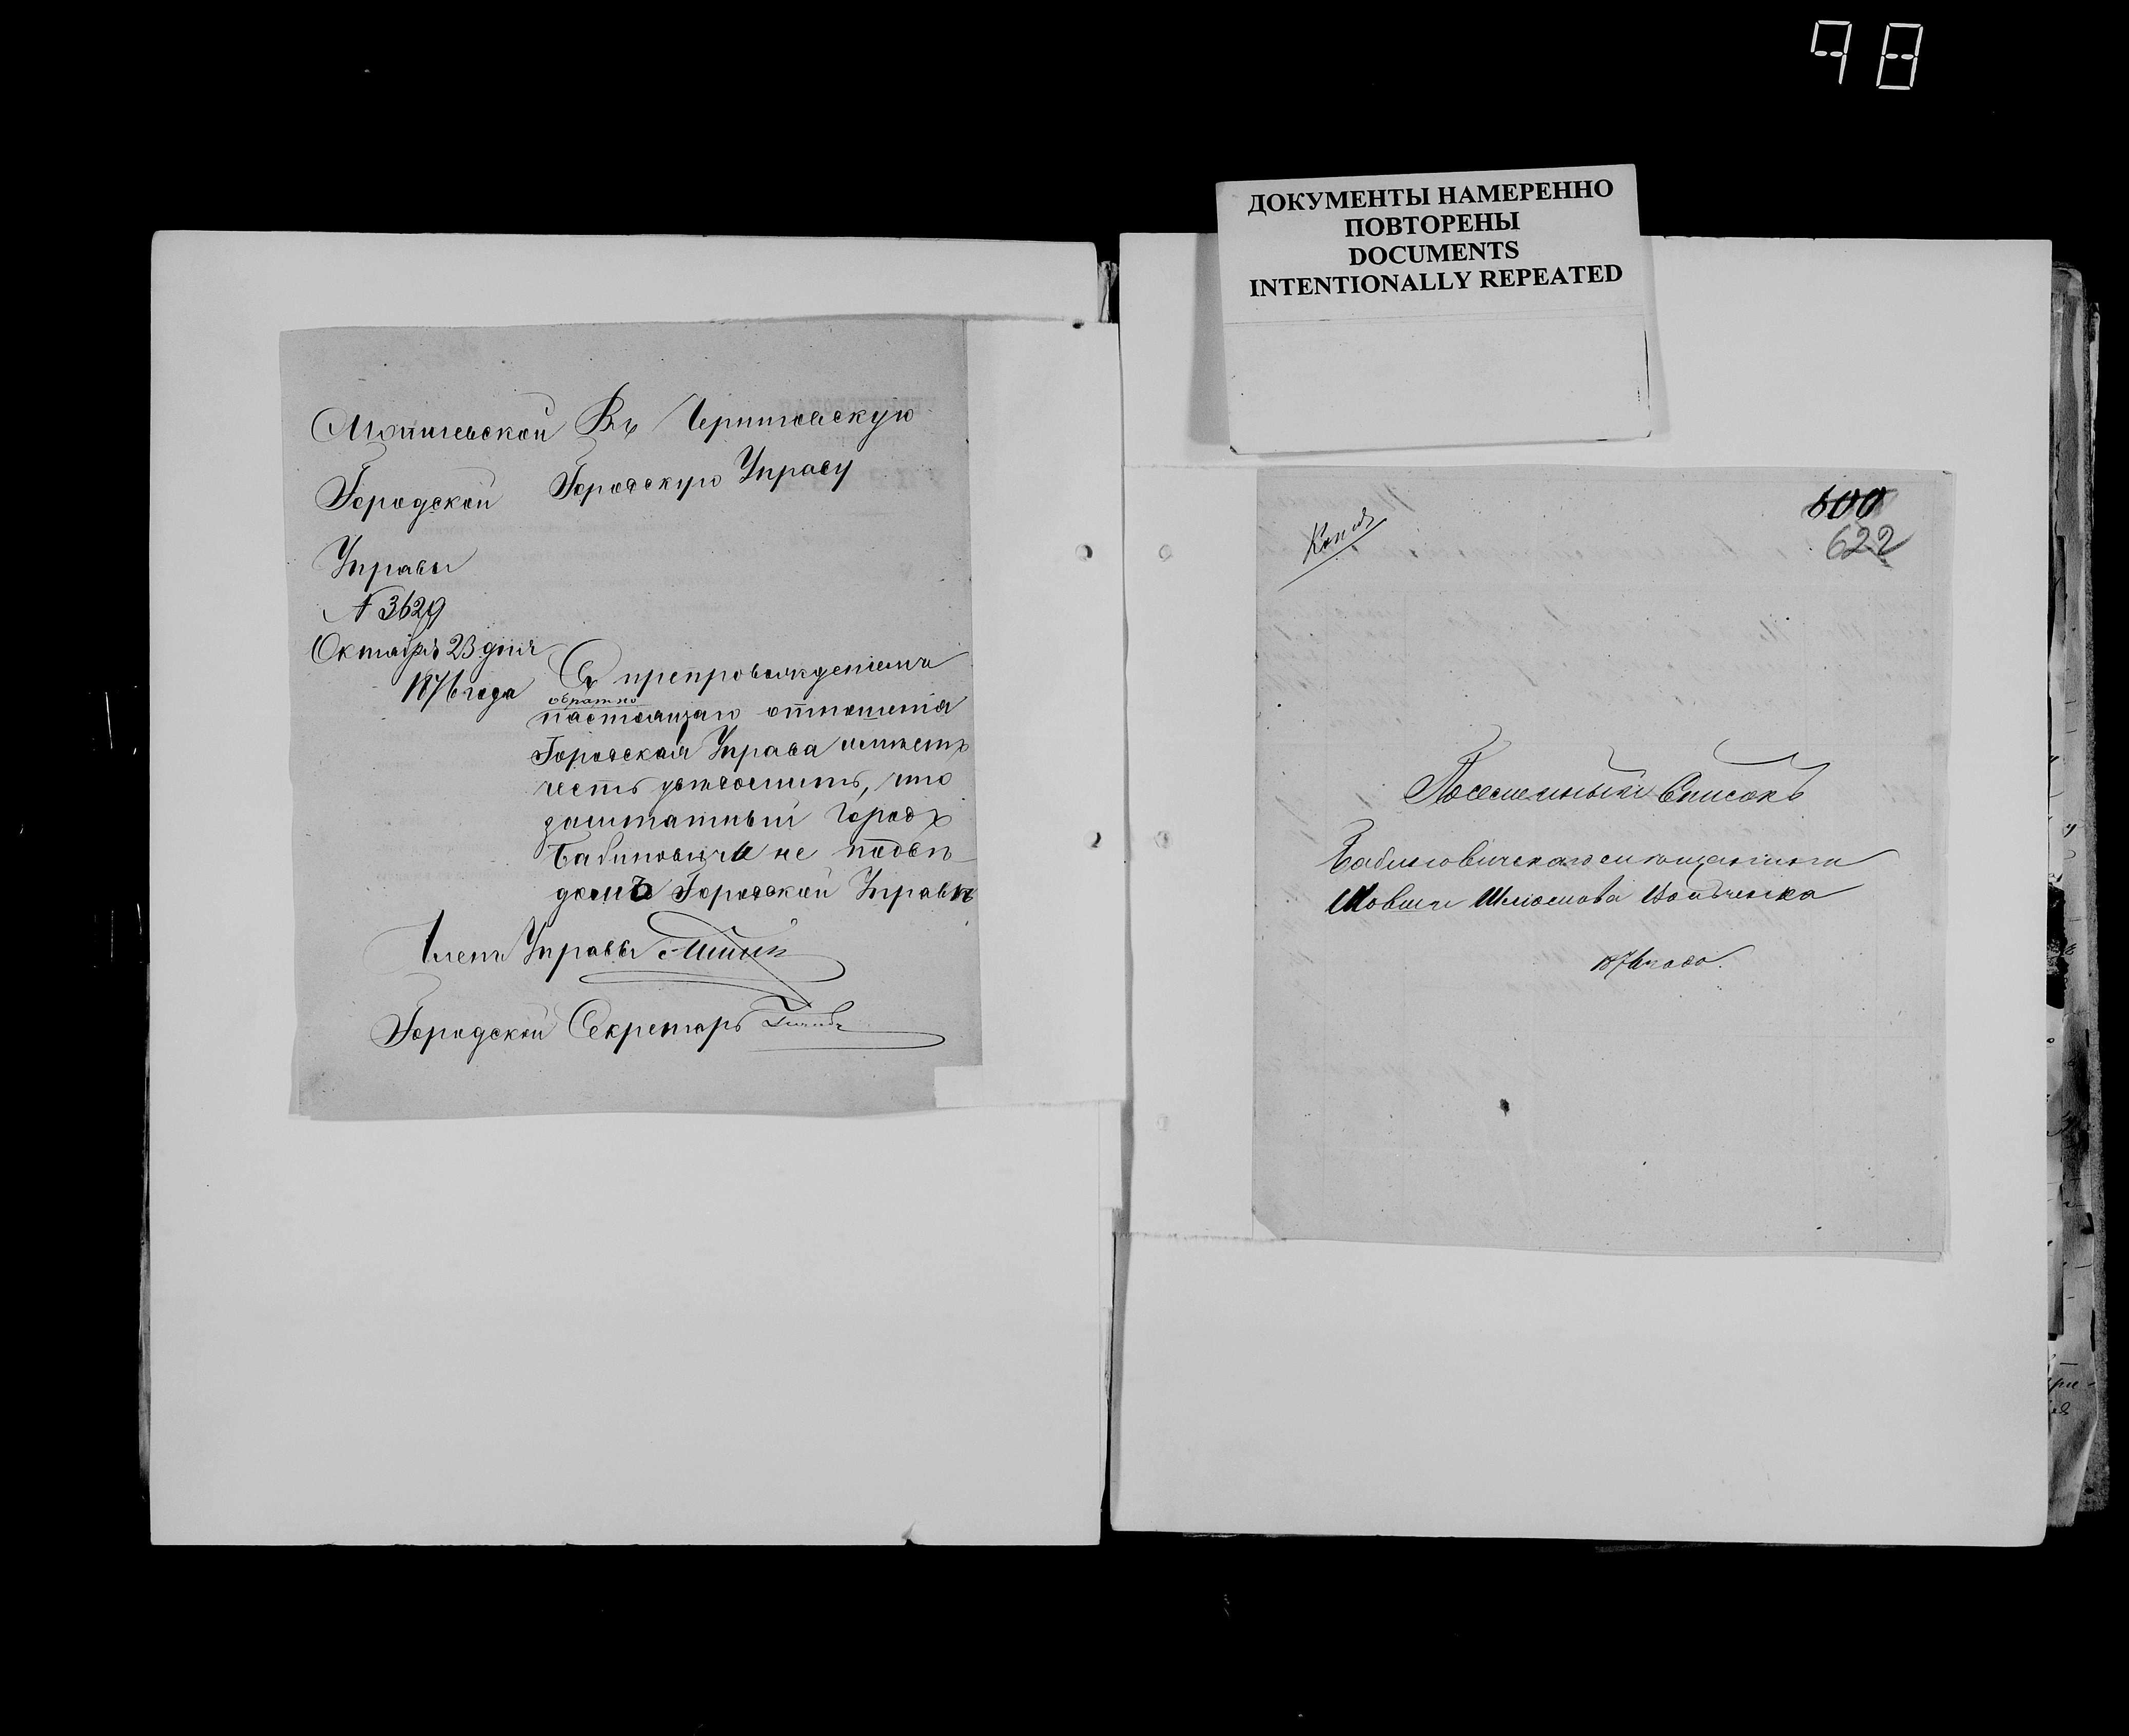 98
ДОКУМЕНТЫ НАМЕРЕННО
ПОВТОРЕНЫ
DOCUMENTS
INTENTIONALLY REPEATED
Могилевской
Городской
Управы
№ 3629
Октября 23 дня
1876 года
Въ Черниговскую
Городскую Управу
Съ препровожденіемъ
обратно
настоящаго отношенія
Городская Управа имѣетъ
честь увѣдомить, что
заштатный городъ
Бабиновичи не подвѣ-
домъ Городской Управѣ
Членъ Управы
Городской Секретарь
Копія
600
622
Посемейный Списокъ
Бабиновичскаго мѣщанина
Мовши Шліомова
1876 года.